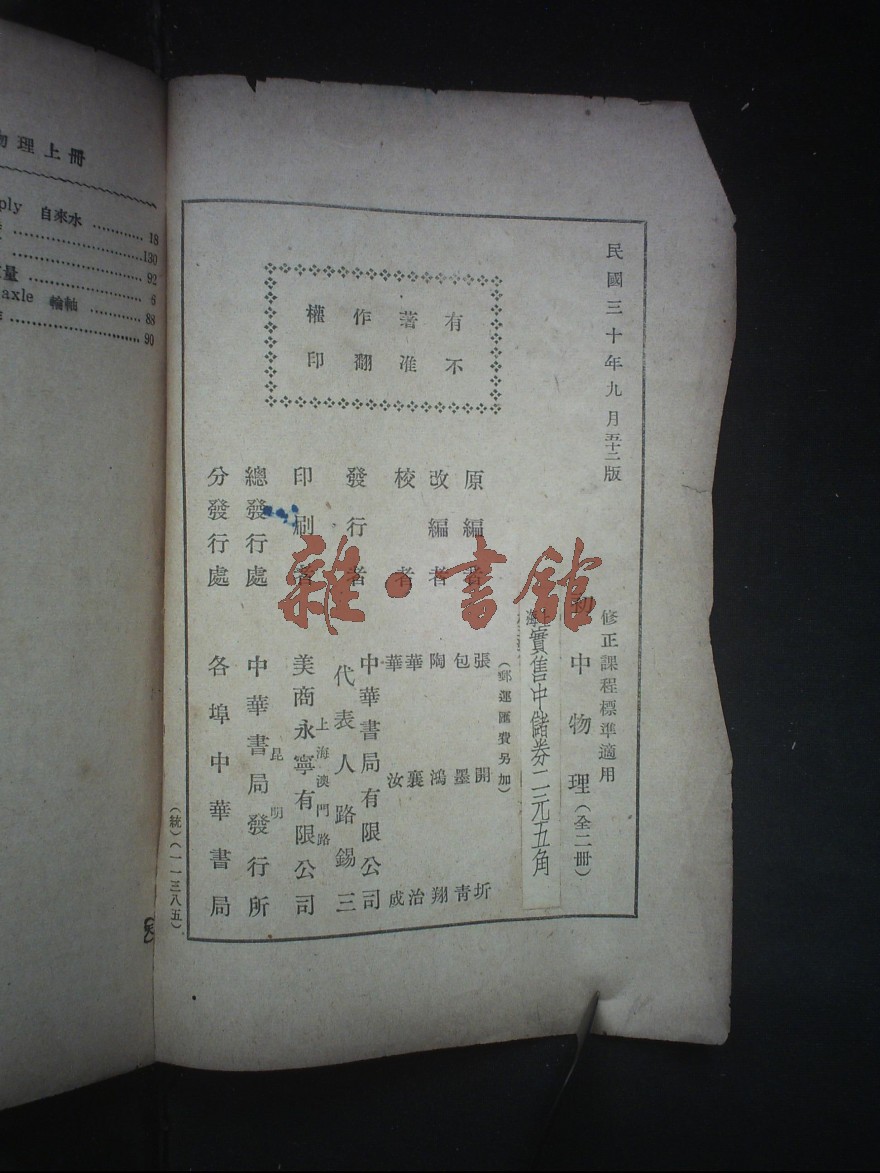 物理上冊
ply 自來水 ………… 18
130
92
量 ………… 6
axle 輪軸 ………… 88
90
民國三十年九月五十二版
修正課程標準適用
初中物理(全二冊)
實售中儲券二元五角
(郵運匯費另加)
有不
著准
作翻
權印
原編者 張開圻
包墨青
改編者 陶鴻翔
校者 華襄治
華汝成
發行者 中華書局有限公司
代表人路錫三
印刷者 上海澳門路
美商永寧有限公司
總發行處 昆明
中華書局發行所
分發行處 各埠中華書局
(統)(一一三八五)
雜·書館